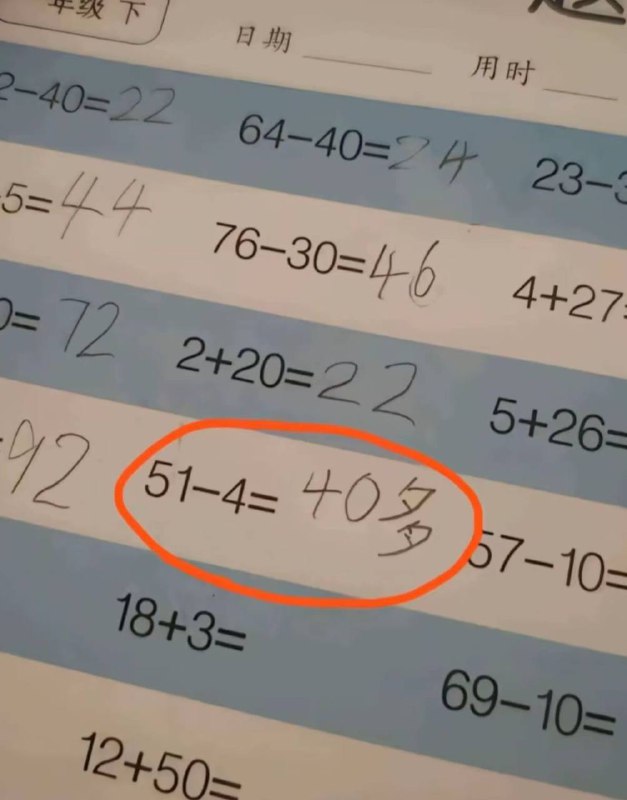 年级 下
日期 用时
2-40=22 64-40=24 23-3
5=44 76-30=46 4+27=
0=72 2+20=22 5+26=
92 51-4=40多 57-10=
18+3= 69-10=
12+50=